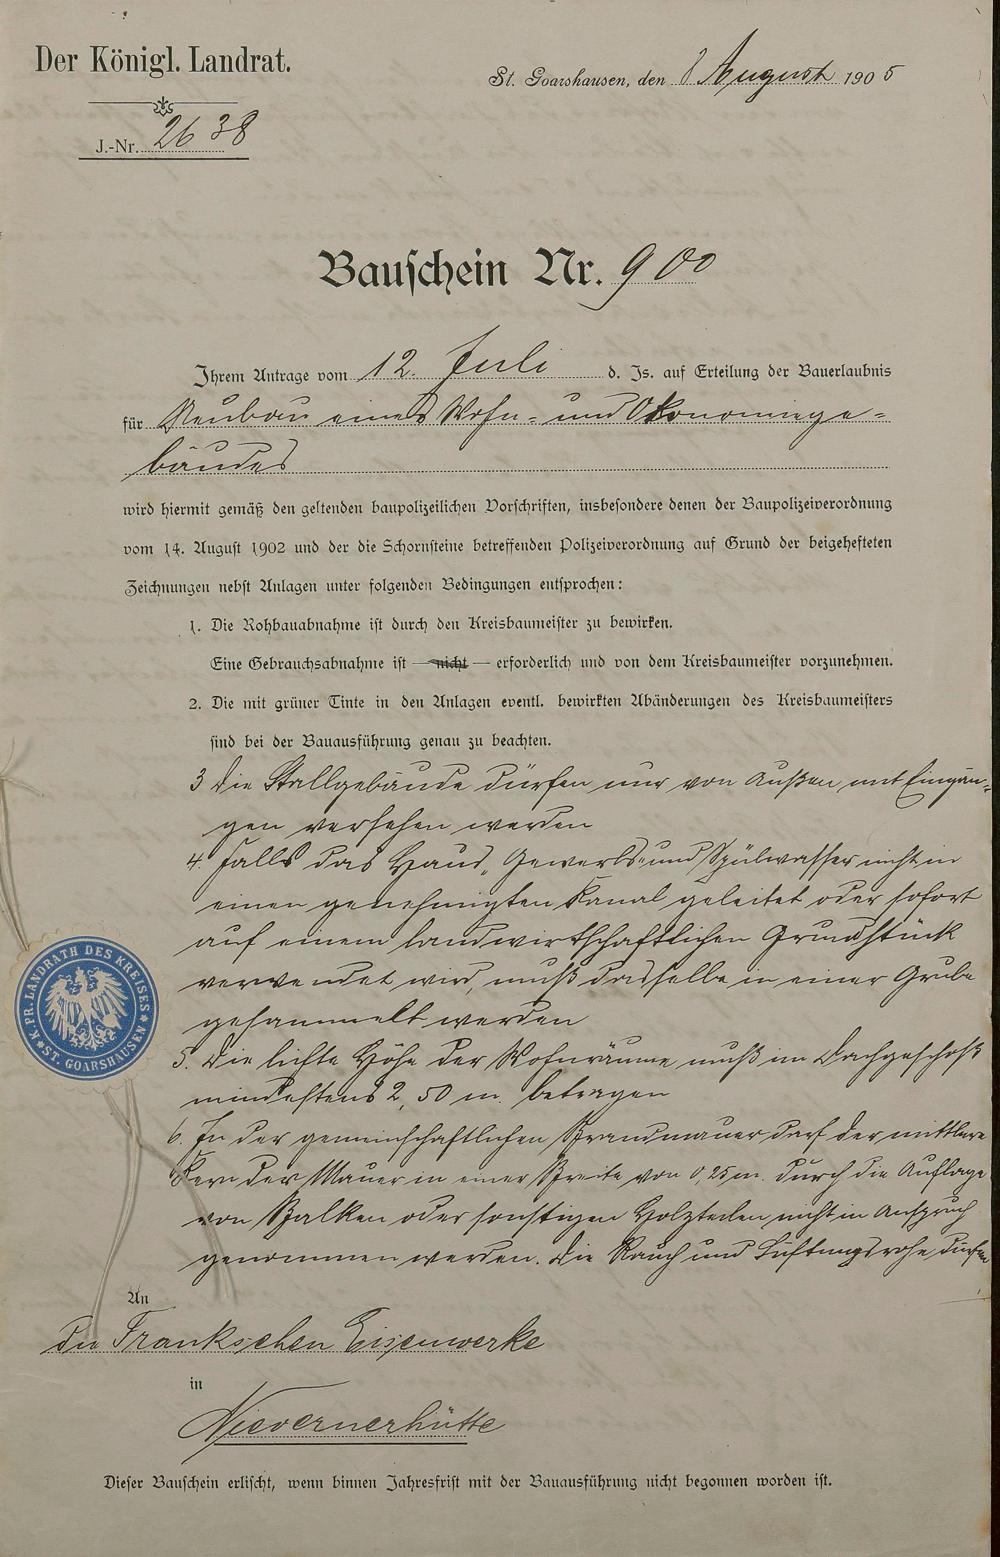 Der Königl. Landrat.
St. Goarshausen, den 8 August 1905
J.-Nr. 2638
Bauschein Nr. 900
Ihrem Antrage vom 12. Juli d. Js. auf Erteilung der Bauerlaubnis
für Neubau eines Wohn- und Ökonomiege-
bäudes
wird hiermit gemäß den geltenden baupolizeilichen Vorschriften, insbesondere denen der Baupolizeiverordnung
vom 14. August 1902 und der die Schornsteine betreffenden Polizeiverordnung auf Grund der beigehefteten
Zeichnungen nebst Anlagen unter folgenden Bedingungen entsprochen:
1. Die Rohbauabnahme ist durch den Kreisbaumeister zu bewirken.
Eine Gebrauchsabnahme ist — nicht — erforderlich und von dem Kreisbaumeister vorzunehmen.
2. Die mit grüner Tinte in den Anlagen eventl. bewirkten Abänderungen des Kreisbaumeisters
sind bei der Bauausführung genau zu beachten.
3 Die Stallgebäude dürfen nur von Außen mit Eingän-
gen versehen werden
4. Falls das Haus, Gewerbs- und Spülwasser nicht in
einen genehmigten Kanal geleitet oder sofort
auf einem landwirtschaftlichen Grundstück
verwendet wird, muß dasselbe in einer Grube
gesammelt werden
5. Die lichte Höhe der Wohnräume muß im Dachgeschoß
mindestens 2,50 m. betragen
6. In der gemeinschaftlichen Brandmauer darf der mittlere
Kern der Mauer in einer Breite von 0,25 m. durch die Auflage
von Balken oder sonstigen Holzteilen nicht in Anspruch
genommen werden. Die Rauch und Lüftungsrohe dürfen
K. PR. LANDRATH DES KREISES
ST. GOARSHAUSEN
An
die Frankschen Eisenwerke
in
Nievernerhütte
Dieser Bauschein erlischt, wenn binnen Jahresfrist mit der Bauausführung nicht begonnen worden ist.